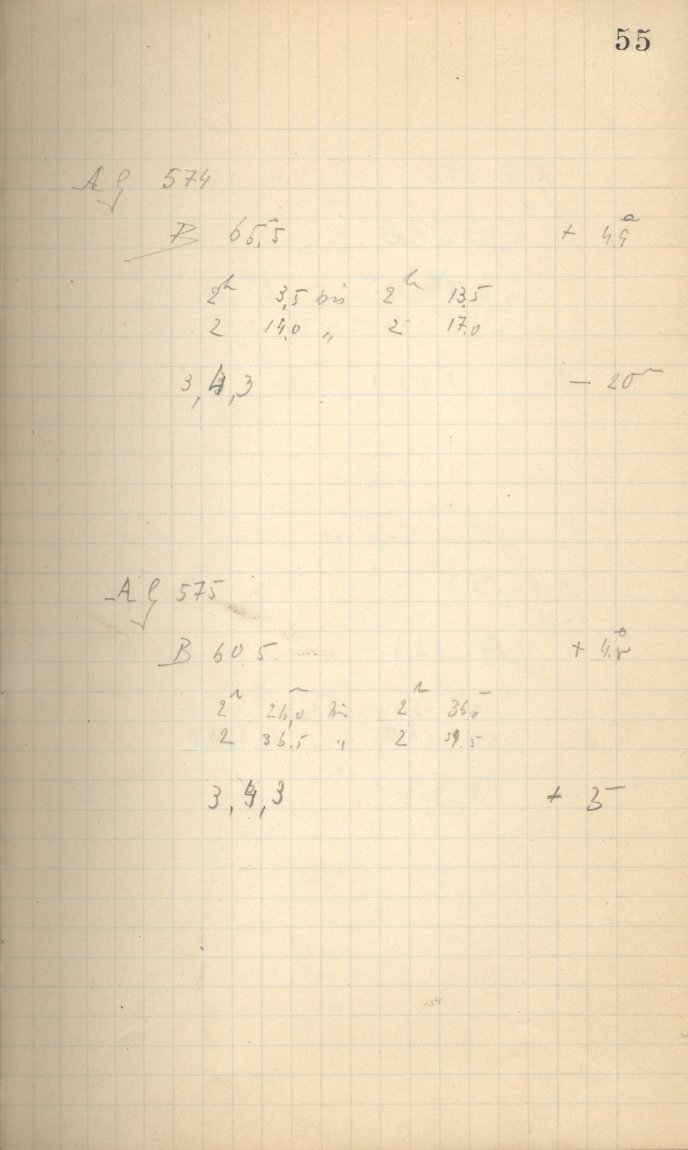 55
AG 574
B 65,5 + 4,9°
2h 3,5 bis 2h 13,5
2 14,0 „ 2 17,0
3, 4, 3 – 20m
AG 575
B 60 5 + 4.5°
2h 26,0m bis 2h 36,0m
2 36.5 „ 2 39.5
3, 4, 3 + 5